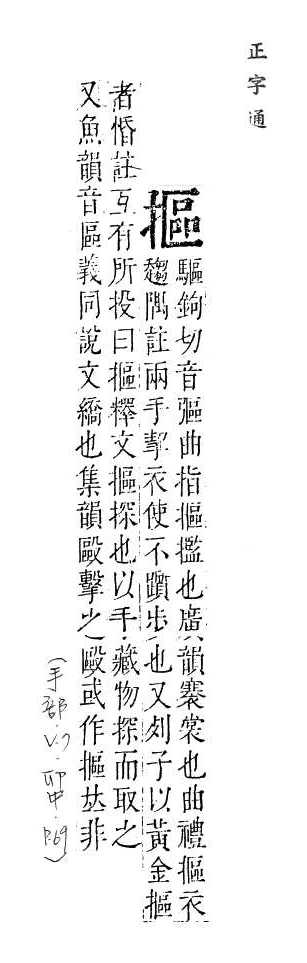 正字通
摳
驅鉤切音彄曲指摳㩜也廣韻褰裳也曲禮摳衣
趨隅註兩手挈衣使不躓步也又列子以黃金摳
者惛註互有所投曰摳釋文摳探也以手藏物探而取之
又魚韻音區義同說文繑也集韻毆擊之毆或作摳𠀤非
(手部·V.7·卯中·P.69)